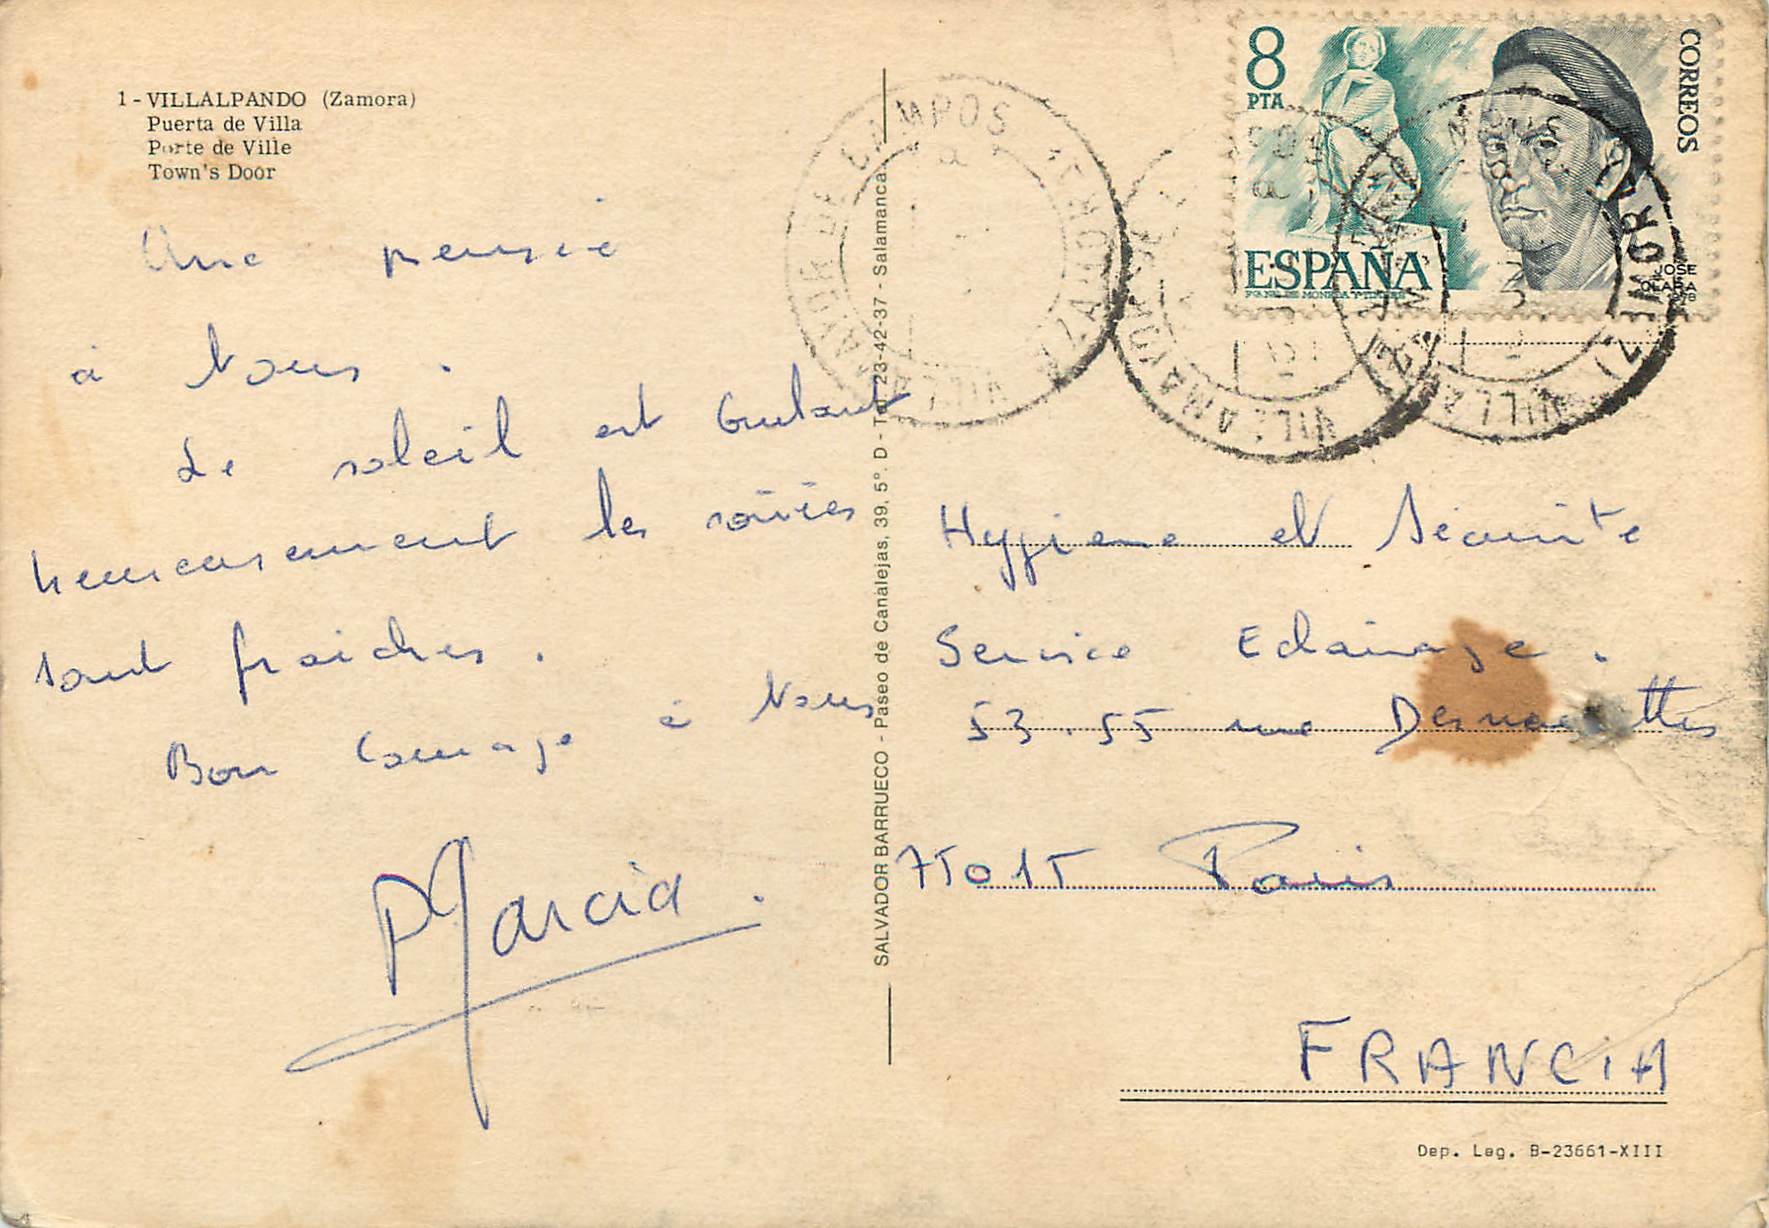 1 - VILLALPANDO (Zamora)
Puerta de Villa
Porte de Ville
Town's Door
Une pensée
à vous.
Le soleil est brulant
heureusement les soirées
sont fraiches.
Bon Courage à vous
P Garcia.
SALVADOR BARRUECO - Paseo de Canalejas, 39, 5º. D - T 23-42-37 - Salamanca.
8
PTA
CORREOS
ESPAÑA
JOSE
CLARA
1978
VILLAMAYOR DE CAMPOS (ZAMORA)
VILLAMAYOR DE
VILLA (ZAMORA)
Hygiene et Sécurité
Service Eclairage.
53.55 rue Desnouettes
75015 Paris
FRANCIA
Dep. Leg. B-23661-XIII